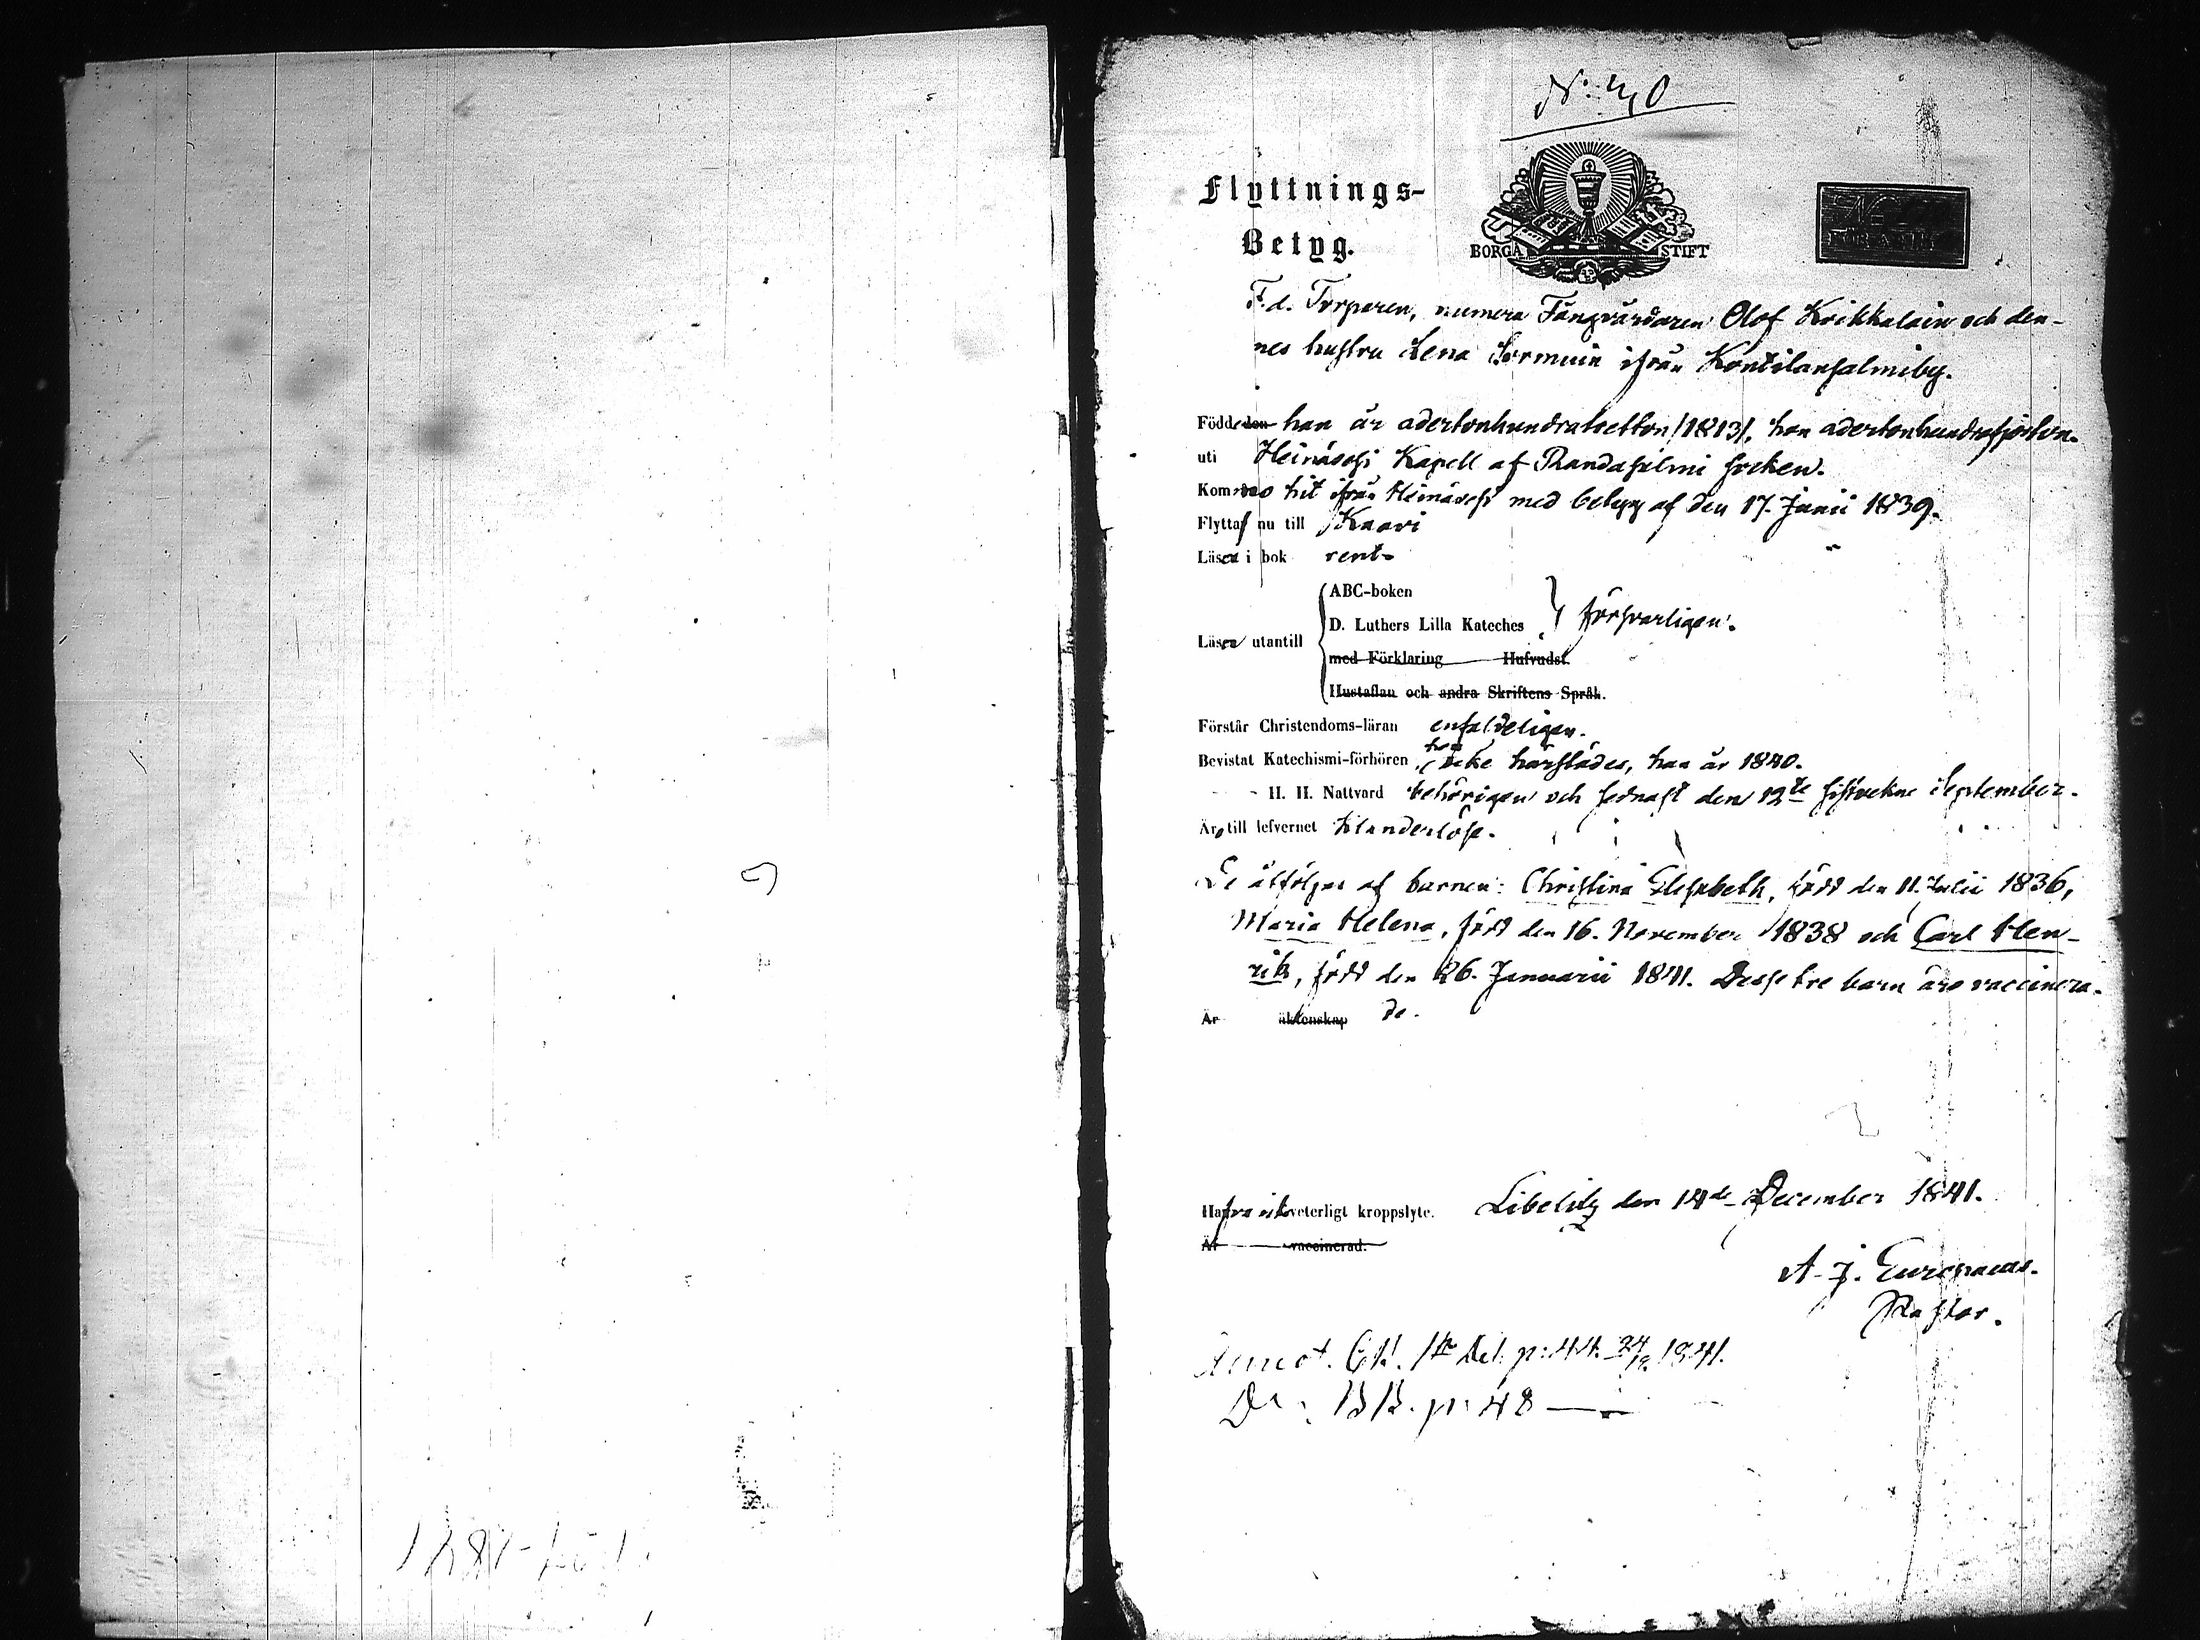 N:o 40
Flyttnings-
Betyg.
BORGÅ STIFT
F.d. Torparen, numera Fångvårdaren Olof Koikkalain och den-
nes hustru Lena Sormuin ifrån Kontilansalmiby.
Född den han år adertonhundratretton /1813/, hon adertonhundrafjorton
uti Heinävesi Kapell af Randasalmi socken.
Kommo hit ifrån Heinävesi med betyg af den 17. Junii 1839.
Flytta nu till Kaavi
Läsa i bok rent.
ABC-boken
D. Luthers Lilla Kateches försvarligen.
Läsa utantill
med Förklaring Hufvudst.
Hustaflan och andra Skriftens Språk.
Förstår Christendoms-läran enfaldeligen.
Bevistat Katechismi-förhören hon icke härstädes, han år 1840.
H. H. Nattvard behörigen och sednast den 12te sistvekne September.
Äro till lefvernet klanderlöse.
De åtföljas af barnen: Christina Elisabeth, född den 11. Julii 1836,
Maria Helena, född den 16. November 1838 och Carl Hen-
rik, född den 26. Januarii 1841. Desse tre barn äro vaccinera-
Är äktenskap de.
Hafva ick veterligt kroppslyte. Libelitz den 14de December 1841.
Är vaccinerad.
A. J. Europaeus.
Pastor.
Annot. CB. 1ta Del. p: 44. 24/12 1841.
Do: BB. p: 48